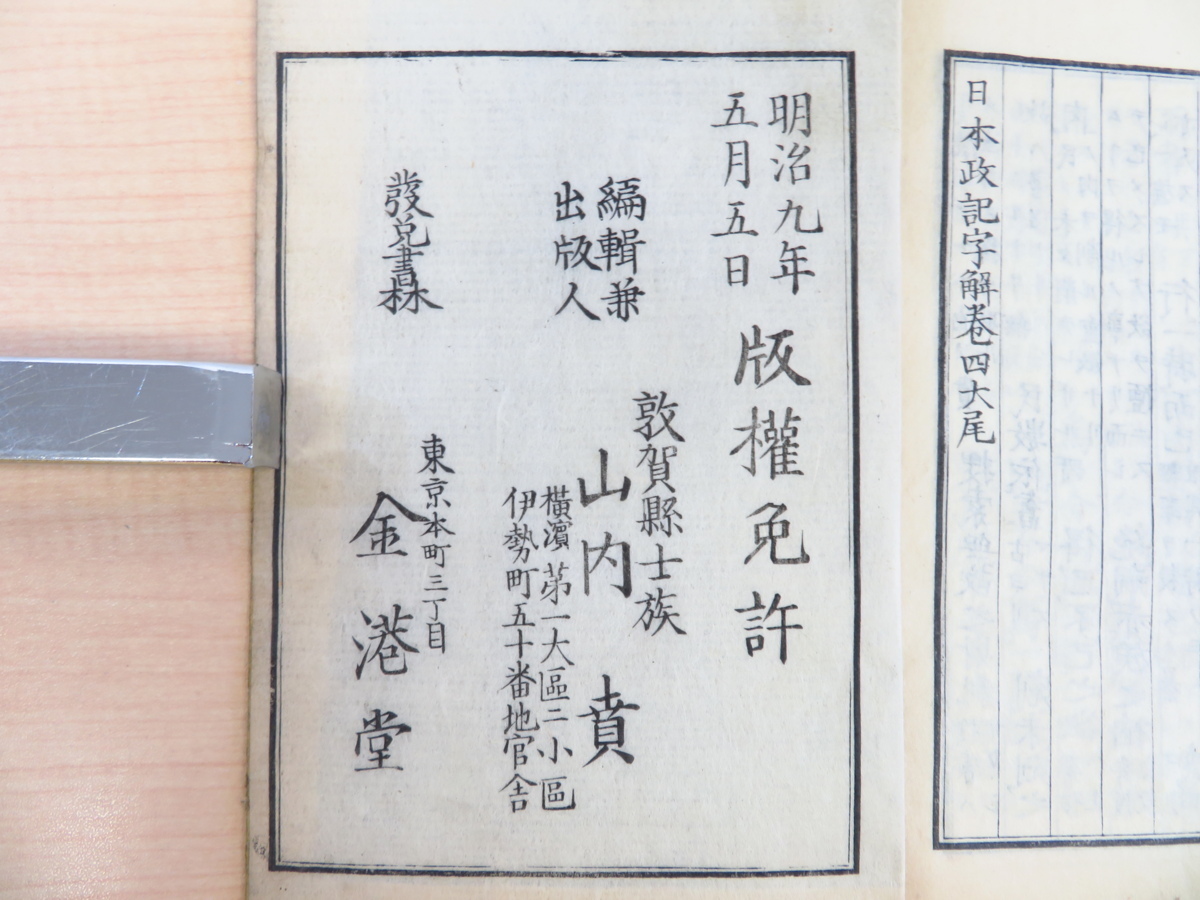 日本政記字解卷四大尾
明治九年
五月五日
版權免許
編輯兼
出版人
敦賀縣士族
山内賁
橫濱第一大區二小區
伊勢町五十番地官舎
發兌書林
東京本町三丁目
金港堂